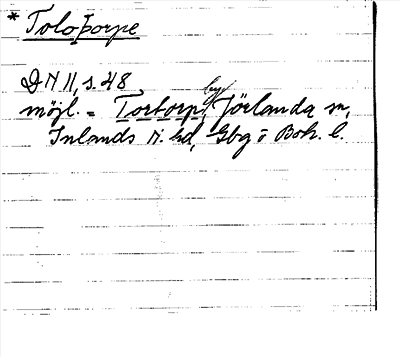 * Toloþorpe
DN II, s. 48
möjl. = Tortorp, by, Jörlanda sn,
Inlands N. hd, Gbg o Boh. l.